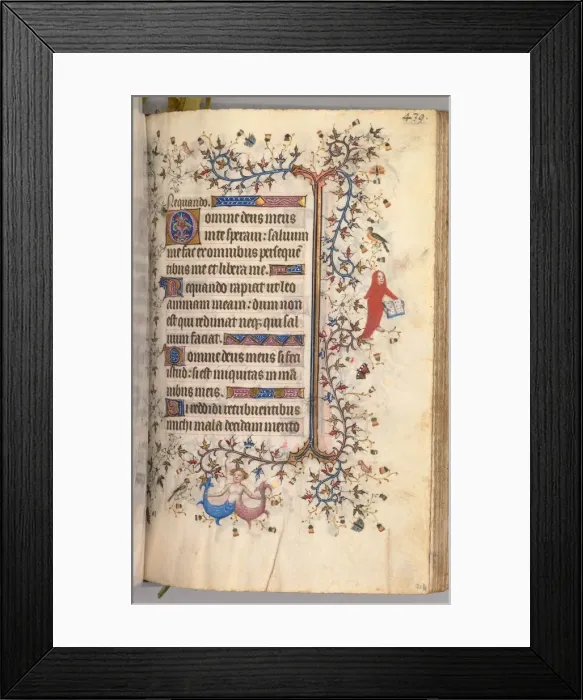 479.
Nequando.
Domine deus meus
in te speraui: saluum
me fac ex omnibus perseque
tibus me et libera me.
Nequando rapiat ut leo
animam meam: dum non
est qui redimat neq; qui sal
uum faciat.
Domine deus meus si feci
istud: si est iniquitas in ma
nibus meis.
Si reddidi retribuentibus
michi mala decidam merito